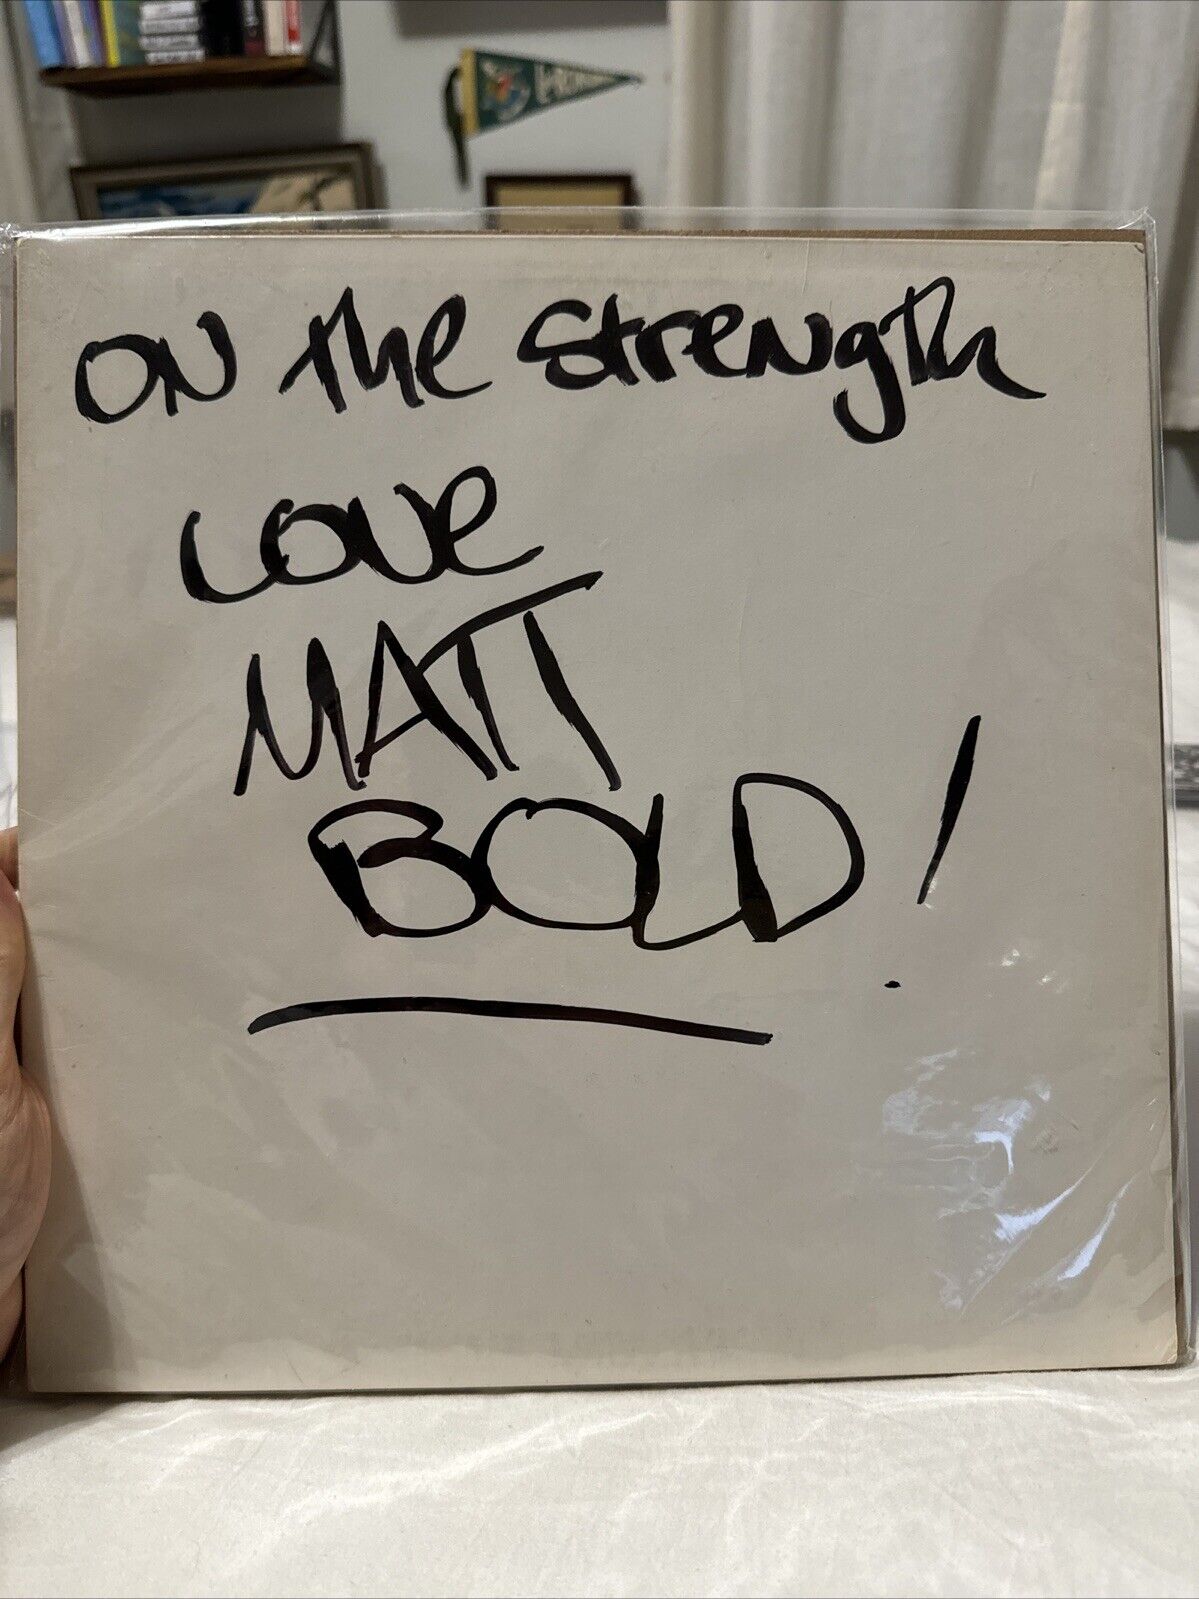 ON The Strength
LOVE
MATT
BOLD!